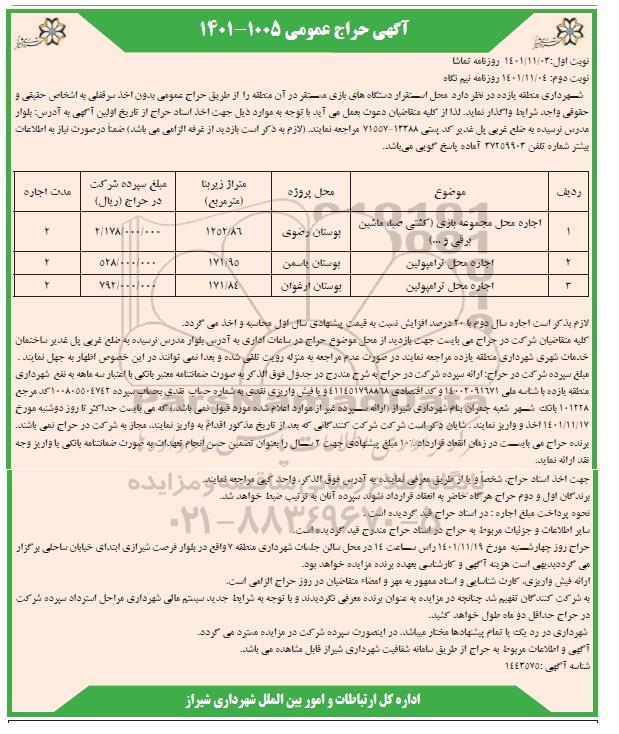 آگهی حراج عمومی ۱۰۰۵-۱۴۰۱
نوبت اول: ۱۴۰۱/۱۱/۰۳ روزنامه تماشا
نوبت دوم: ۱۴۰۱/۱۱/۰۴ روزنامه نیم نگاه
شهرداری منطقه یازده در نظر دارد محل استقرار دستگاه های بازی مستقر در آن منطقه را از طریق حراج عمومی بدون اخذ سرقفلی به اشخاص حقیقی و
حقوقی واجد شرایط واگذار نماید. لذا از کلیه متقاضیان دعوت بعمل می آید با توجه به موارد ذیل جهت اخذ اسناد حراج از تاریخ اولین آگهی به آدرس: بلوار
مدرس نرسیده به ضلع غربی پل غدیر کد پستی ۱۳۳۸۸-۷۱۵۵۷ مراجعه نمایند. (لازم به ذکر است بازدید از غرفه الزامی می باشد) ضمناً درصورت نیاز به اطلاعات
بیشتر شماره تلفن ۳۷۲۵۹۹۰۳ آماده پاسخ گویی می‌باشد.
ردیف موضوع محل پروژه متراژ زیربنا (مترمربع) مبلغ سپرده شرکت در حراج (ریال) مدت اجاره
۱ اجاره محل مجموعه بازی (کشتی صبا، ماشین برقی و ...) بوستان رضوی ۱۲۵۲/۸۶ ۲/۱۷۸/۰۰۰/۰۰۰ ۲
۲ اجاره محل ترامپولین بوستان یاسمن ۱۷۱/۹۵ ۵۲۸/۰۰۰/۰۰۰ ۲
۳ اجاره محل ترامپولین بوستان ارغوان ۱۷۱/۸۴ ۷۹۲/۰۰۰/۰۰۰ ۲
لازم بذکر است اجاره سال دوم با ۲۰ درصد افزایش نسبت به قیمت پیشنهادی سال اول محاسبه و اخذ می گردد.
کلیه متقاضیان شرکت در حراج می بایست جهت بازدید از محل موضوع حراج در ساعات اداری به آدرس بلوار مدرس نرسیده به ضلع غربی پل غدیر ساختمان
خدمات شهری شهرداری منطقه یازده مراجعه نمایند در صورت عدم مراجعه به منزله رویت تلقی شده و بعدا نمی توانند در این خصوص اظهار به جهل نمایند .
مبلغ سپرده شرکت در حراج: ارائه سپرده شرکت در حراج به شرح مندرج در جدول فوق الذکر به صورت ضمانتنامه معتبر بانکی با اعتبار سه ماهه به نفع شهرداری
منطقه یازده با شناسه ملی ۱۴۰۰۲۰۹۱۶۷۱ و کد اقتصادی ۴۱۱۴۵۱۷۹۸۸۶۸ و یا فیش واریزی نقدی به شماره حساب نقدی بحساب سپرده ۱۰۰۸۰۵۵۰۴۷۴۲کد مرجع
۱۰۱۲۲۸ بانک شهر شعبه چمران بنام شهرداری شیراز (ارائه سپرده غیر از موارد اعلام شده مورد قبول نمی باشد.) که می بایست حداکثر تا روز دوشنبه مورخ
۱۴۰۱/۱۱/۱۷ اخذ و واریز نمایند . شایان ذکر است شرکت کنندگانی که بعد از تاریخ مذکور اقدام به واریز نمایند، مجاز به شرکت در حراج نمی باشند.
برنده حراج می بایست در زمان انعقاد قرارداد ۱۰٪ مبلغ پیشنهادی جهت ۲ سال را بعنوان تضمین حسن انجام تعهدات به صورت ضمانتنامه بانکی یا واریز وجه
نقد ارائه نماید.
جهت اخذ اسناد حراج، شخصاً و یا از طریق معرفی نماینده به آدرس فوق الذکر، واحد کپی مراجعه نمایند.
برندگان اول و دوم حراج هرگاه حاضر به انعقاد قرارداد نشوند سپرده آنان به ترتیب ضبط خواهد شد.
نحوه پرداخت مبلغ اجاره : در اسناد حراج قید گردیده است .
سایر اطلاعات و جزئیات مربوط به حراج در اسناد حراج مندرج قید گردیده است.
حراج روز چهارشنبه مورخ ۱۴۰۱/۱۱/۱۹ راس ساعت ۱۴ در محل سالن جلسات شهرداری منطقه ۷ واقع در بلوار فرصت شیرازی ابتدای خیابان ساحلی برگزار
می گرددبدیهی است هزینه آگهی و کارشناسی بعهده برنده مزایده خواهد بود.
ارائه فیش واریزی، کارت شناسایی و اسناد ممهور به مهر و امضاء متقاضیان در روز حراج الزامی است.
به شرکت کنندگان تفهیم شد چنانچه در مزایده به عنوان برنده معرفی نگردیدند و با توجه به شرایط جدید سیستم مالی شهرداری مراحل استرداد سپرده شرکت
در حراج حداقل دو ماه طول خواهد کشید.
شهرداری در رد یک یا تمام پیشنهادها مختار میباشد. در اینصورت سپرده شرکت در مزایده مسترد می گردد.
آگهی و اطلاعات مربوط به حراج از طریق سامانه شفافیت شهرداری شیراز قابل مشاهده می باشد.
شناسه آگهی :۱۴۴۳۵۷۵
اداره کل ارتباطات و امور بین الملل شهرداری شیراز
۰۲۱-۸۸۳۴۹۶۷۰-۵